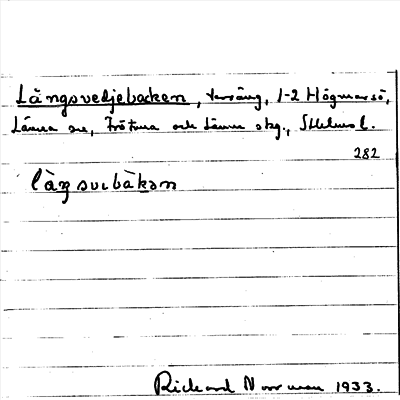 Långsvedjebacken, terräng, 1-2 Högmarsö,
Länna sn, Frötuna och Länna skg., Sthlms l.
282
làŋsvebàkən
Rickard Norrman 1933.